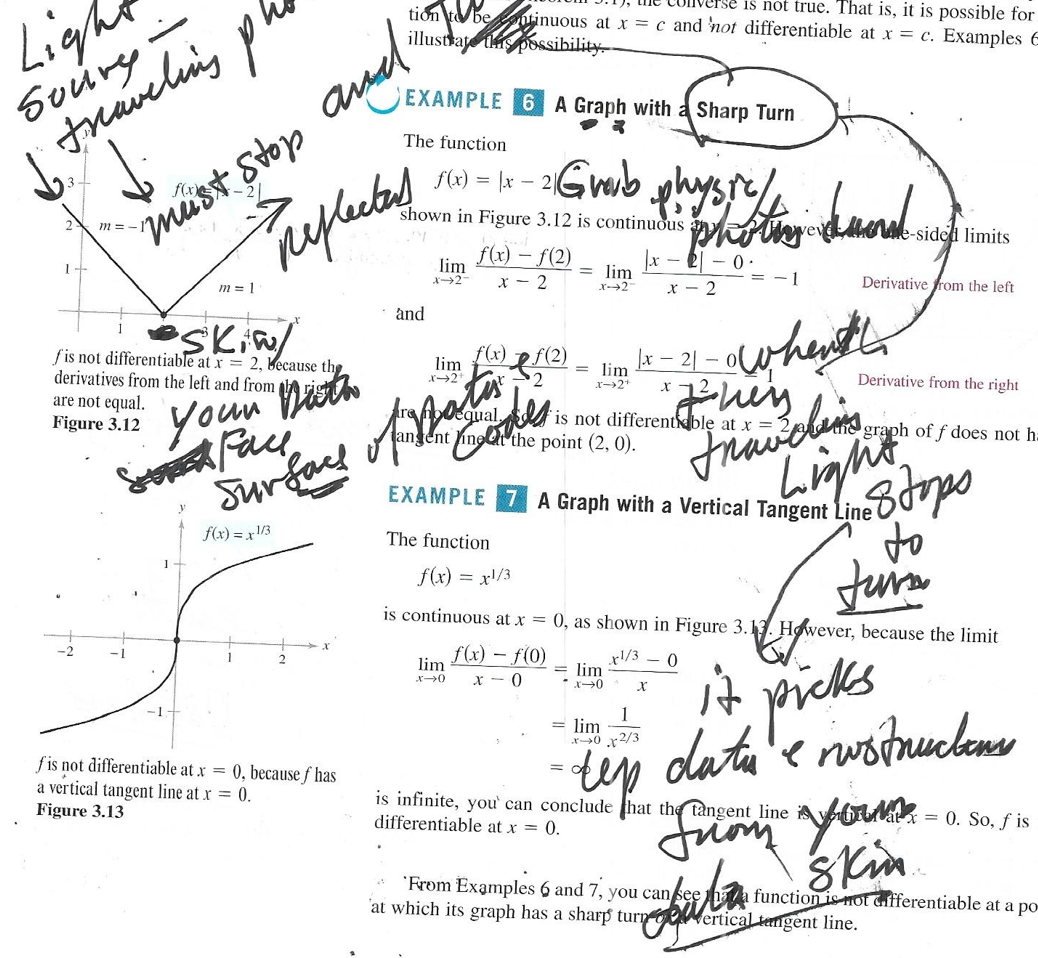 the converse is not true. That is, it is possible for
tion to be continuous at x = c and not differentiable at x = c. Examples 6
illustrate this possibility.
Light
source
traveling
must stop
and
reflected
EXAMPLE 6 A Graph with a Sharp Turn
The function
f(x) = |x − 2|
Grab physic/
photos
shown in Figure 3.12 is continuous However, one-sided limits
lim x→2⁻ f(x) − f(2) / x − 2 = lim x→2⁻ |x − 2| − 0 / x − 2 = −1 Derivative from the left
and
lim x→2⁺ f(x) − f(2) / x − 2 = lim x→2⁺ |x − 2| − 0 / x − 2 = 1 Derivative from the right
are not equal. So, f is not differentiable at x = 2 and the graph of f does not h
tangent line at the point (2, 0).
when
they
traveling
Light
stops
to
turn
it picks
up data & instructions
from your
skin
data
3
2
1
f(x) = |x − 2|
m = −1
m = 1
1
3
4
x
skin/
your data
Face
surface of data &
codes
f is not differentiable at x = 2, because the
derivatives from the left and from the right
are not equal.
Figure 3.12
y
f(x) = x^1/3
1
−2 −1 1 2 x
−1
f is not differentiable at x = 0, because f has
a vertical tangent line at x = 0.
Figure 3.13
EXAMPLE 7 A Graph with a Vertical Tangent Line
The function
f(x) = x^1/3
is continuous at x = 0, as shown in Figure 3.13. However, because the limit
lim x→0 f(x) − f(0) / x − 0 = lim x→0 x^1/3 − 0 / x
= lim x→0 1 / x^2/3
= ∞
is infinite, you can conclude that the tangent line is vertical at x = 0. So, f is
differentiable at x = 0.
From Examples 6 and 7, you can see that a function is not differentiable at a po
at which its graph has a sharp turn or a vertical tangent line.